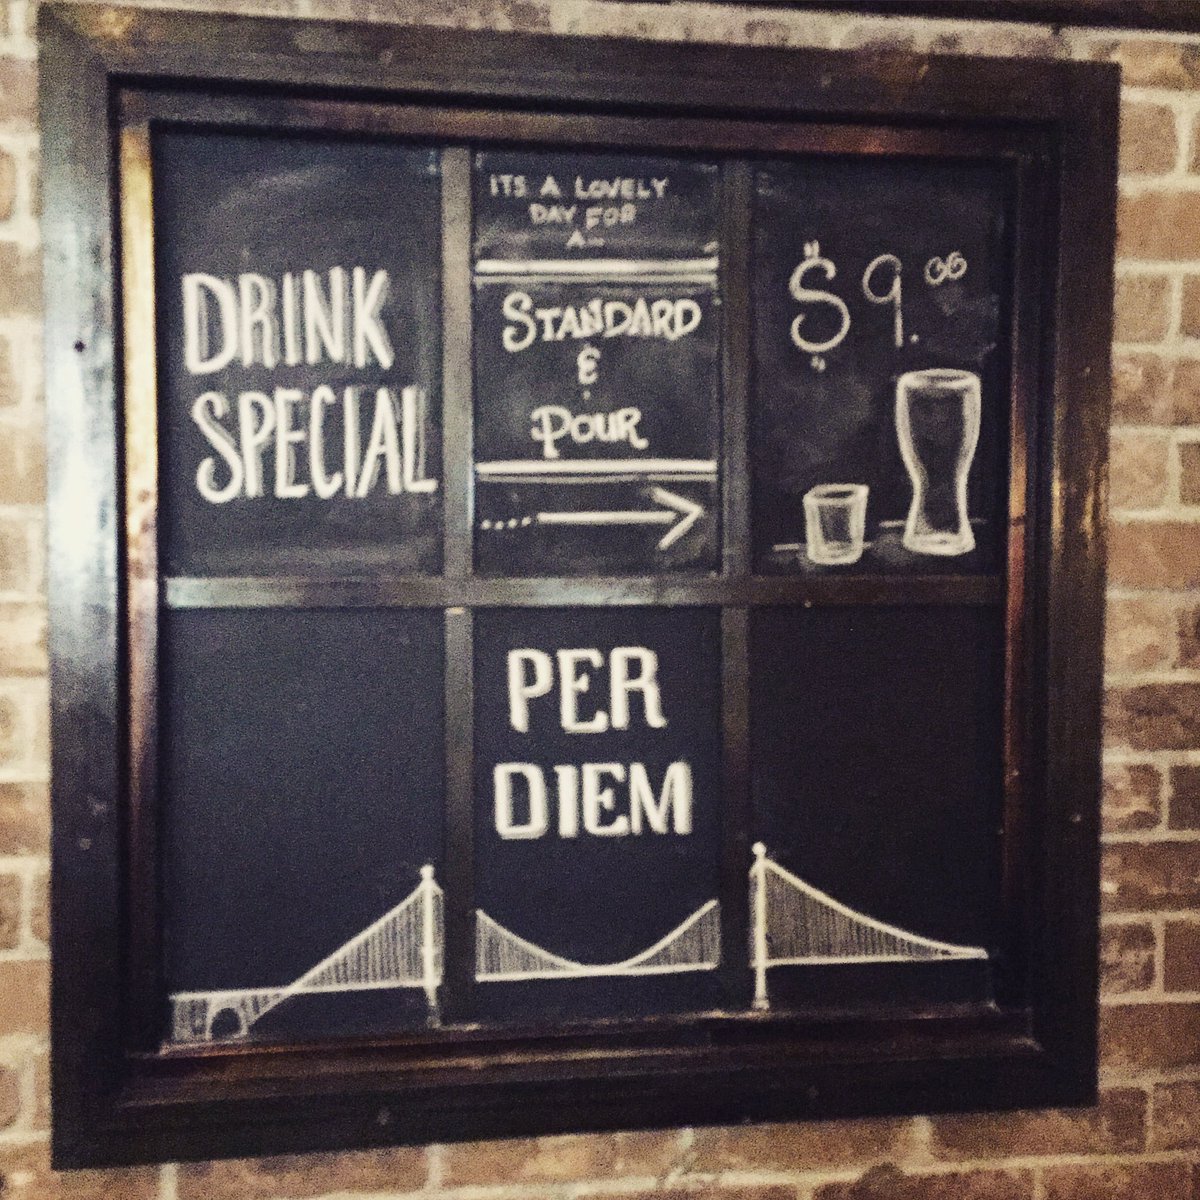 DRINK
SPECIAL
ITS A LOVELY
DAY FOR
A...
STANDARD
&
POUR
$9.00
PER
DIEM